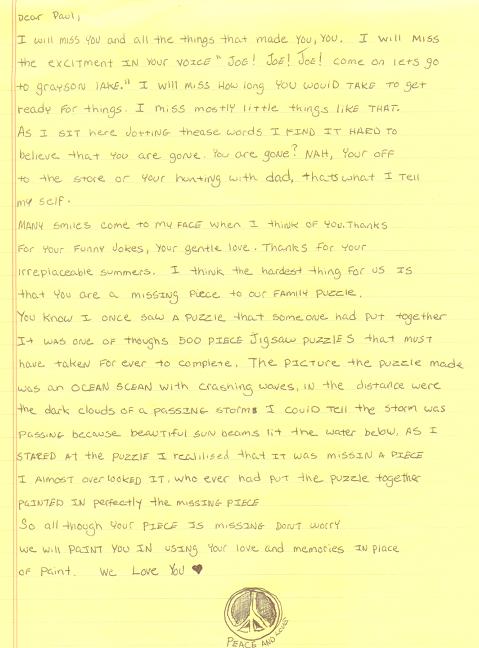 Dear Paul,
I will miss you and all the things that made you, you. I will miss
the excitment in your voice "Joe! Joe! Joe! come on lets go
to grayson lake." I will miss how long you would take to get
ready for things. I miss mostly little things like that.
As I sit here jotting thease words I find it hard to
believe that you are gone. You are gone? Nah, your off
to the store or your hunting with dad, thats what I tell
my self.
Many smiles come to my face when I think of you. Thanks
for your funny jokes, your gentle love. Thanks for your
irreplaceable summers. I think the hardest thing for us is
that you are a missing piece to our family puzzle.
You know I once saw a puzzle that someone had put together
It was one of thoughs 500 piece jigsaw puzzles that must
have taken for ever to complete. The picture the puzzle made
was an ocean scean with crashing waves, in the distance were
the dark clouds of a passing storm I could tell the storm was
passing because beautiful sun beams lit the water below. As I
stared at the puzzle I realilised that it was missin a piece
I almost over looked it. who ever had put the puzzle together
painted in perfectly the missing piece
So all though your piece is missing dont worry
we will paint you in using your love and memories in place
of paint. We Love You ♥
Peace and Love